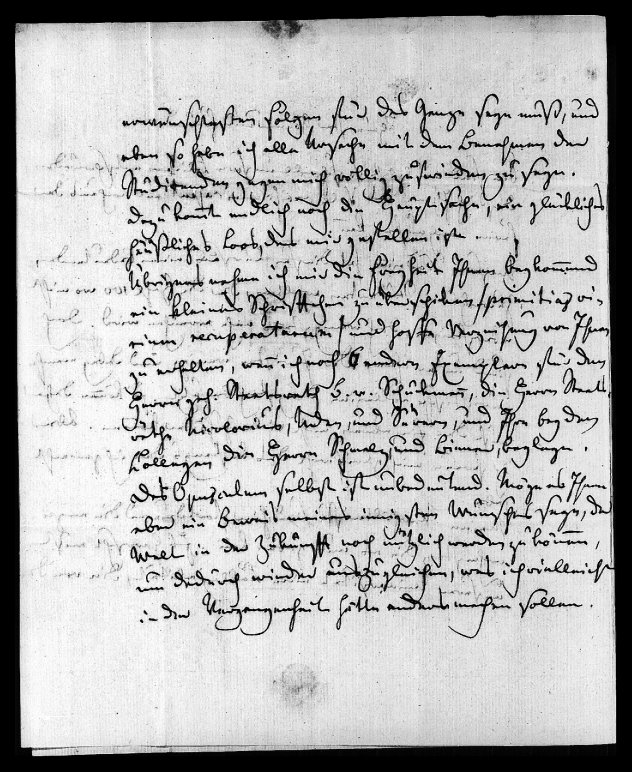 erwünschtesten Folgen für das Ganze seyn muß, und
eben so habe ich alle Ursache mit dem Benehmen der
Studirenden gegen mich völlig zufrieden zu seyn.
dazu kommt endlich noch die Hauptsache, ein glückliches
häußliches Loos, das mir gefallen ist.
Übrigens nehme ich mir die Freyheit Ihnen beykommend
ein kleines Schriftchen zu überschicken /:primitias
einer recuperatarum:/ und hoffe Verzeihung von Ihnen
zu erhalten, wenn ich noch 6 andere Exemplare für den
Herrn geh. Staatsrath B. v. Schukmann, die Herrn Staats-
räthe Nicolovius, Uhden, und Süvern, und Ihre beyden
Collegen die Herrn Schmalz und Biener, beylege.
Das Opusculum selbst ist unbedeutend. Mög es Ihnen
aber ein Beweis meines innigsten Wunsches seyn, der
Welt in der Zukunft noch nützlich werden zu können,
um dadurch wieder auszugleichen, was ich vielleicht
in der Vergangenheit hätte anders machen sollen.